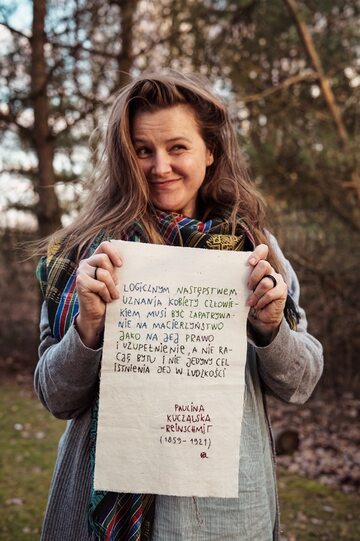 LOGICZNYM NASTĘPSTWEM
UZNANIA KOBIETY CZŁOWIE-
KIEM MUSI BYĆ ZAPATRYWA-
NIE NA MACIERZYŃSTWO
JAKO NA JEJ PRAWO
I UZUPEŁNIENIE, A NIE RA-
CJĘ BYTU I NIE JEDYNY CEL
ISTNIENIA JEJ W LUDZKOŚCI
PAULINA
KUCZALSKA
-REINSCHMIT
(1859-1921)